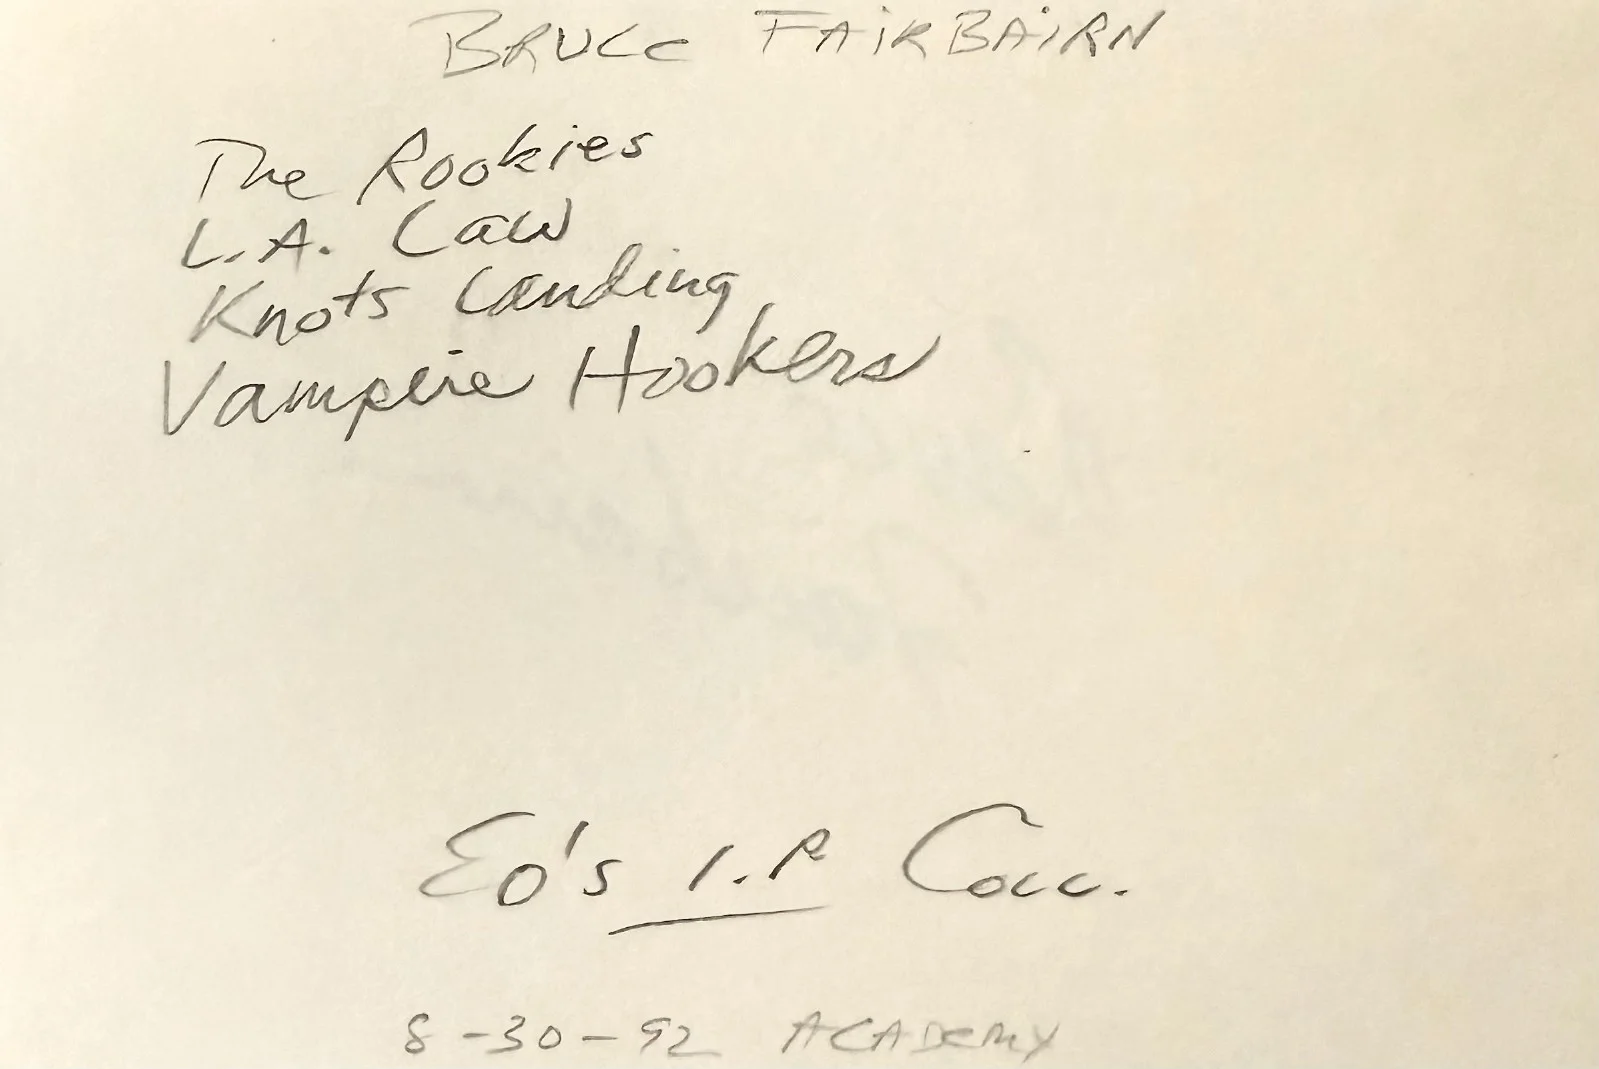 BRUCE FAIRBAIRN
The Rookies
L.A. Law
Knots Landing
Vampire Hookers
Ed's I.P Coll.
8-30-92 ACADEMY